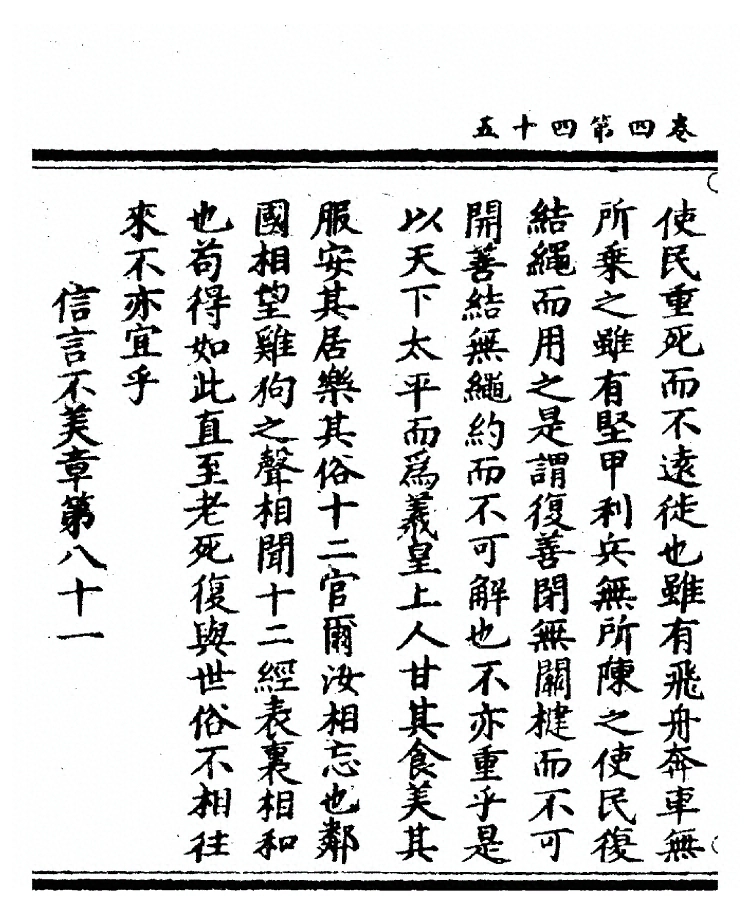 卷四第四十五
使民重死而不遠徙也雖有飛舟奔車無
所乘之雖有堅甲利兵無所陳之使民復
結繩而用之是謂復善閉無關楗而不可
開善結無繩約而不可解也不亦重乎是
以天下太平而為羲皇上人甘其食美其
服安其居樂其俗十二官爾汝相忘也鄰
國相望雞狗之聲相聞十二經表裏相和
也苟得如此直至老死復與世俗不相往
來不亦宜乎
信言不美章第八十一